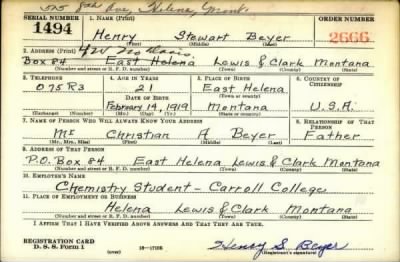 525 8th Ave, Helena, Mont.
SERIAL NUMBER 1. NAME (Print) ORDER NUMBER
1494 Henry Stewart Beyer 2666
(First) (Middle) (Last)
2. ADDRESS (Print)
Box 84 East Helena Lewis & Clark Montana
(Number and street or R. F. D. number) (Town) (County) (State)
3. TELEPHONE 4. AGE IN YEARS 5. PLACE OF BIRTH 6. COUNTRY OF CITIZENSHIP
075R3 21 East Helena
DATE OF BIRTH (Town or county)
February 14, 1919 Montana U.S.A.
(Exchange) (Number) (Mo.) (Day) (Yr.) (State or country)
7. NAME OF PERSON WHO WILL ALWAYS KNOW YOUR ADDRESS 8. RELATIONSHIP OF THAT PERSON
Mr Christian A Beyer Father
(Mr., Mrs., Miss) (First) (Middle) (Last)
9. ADDRESS OF THAT PERSON
P.O. Box 84 East Helena Lewis & Clark Montana
(Number and street or R. F. D. number) (Town) (County) (State)
10. EMPLOYER'S NAME
Chemistry Student - Carroll College
11. PLACE OF EMPLOYMENT OR BUSINESS
Helena Lewis & Clark Montana
(Number and street or R. F. D. number) (Town) (County) (State)
I AFFIRM THAT I HAVE VERIFIED ABOVE ANSWERS AND THAT THEY ARE TRUE.
REGISTRATION CARD
D. S. S. Form 1 (over) 16-17105 Henry S. Beyer
(Registrant's signature)